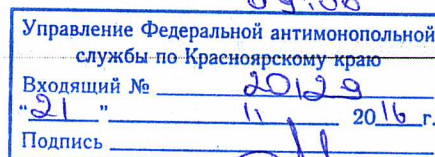 Управление Федеральной антимонопольной
службы по Красноярскому краю
Входящий № 20129
"21" 11 2016 г.
Подпись